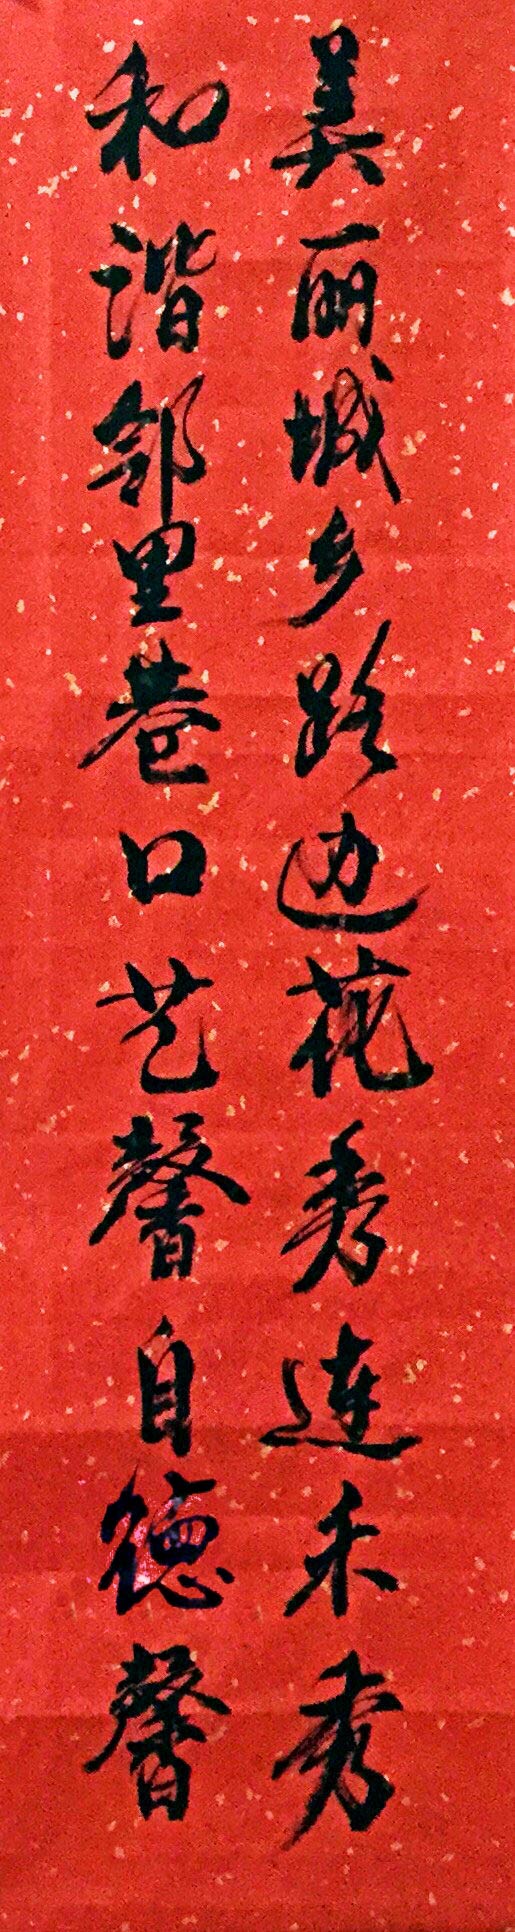 美丽城乡路边花秀连禾秀
和谐邻里巷口艺馨自德馨